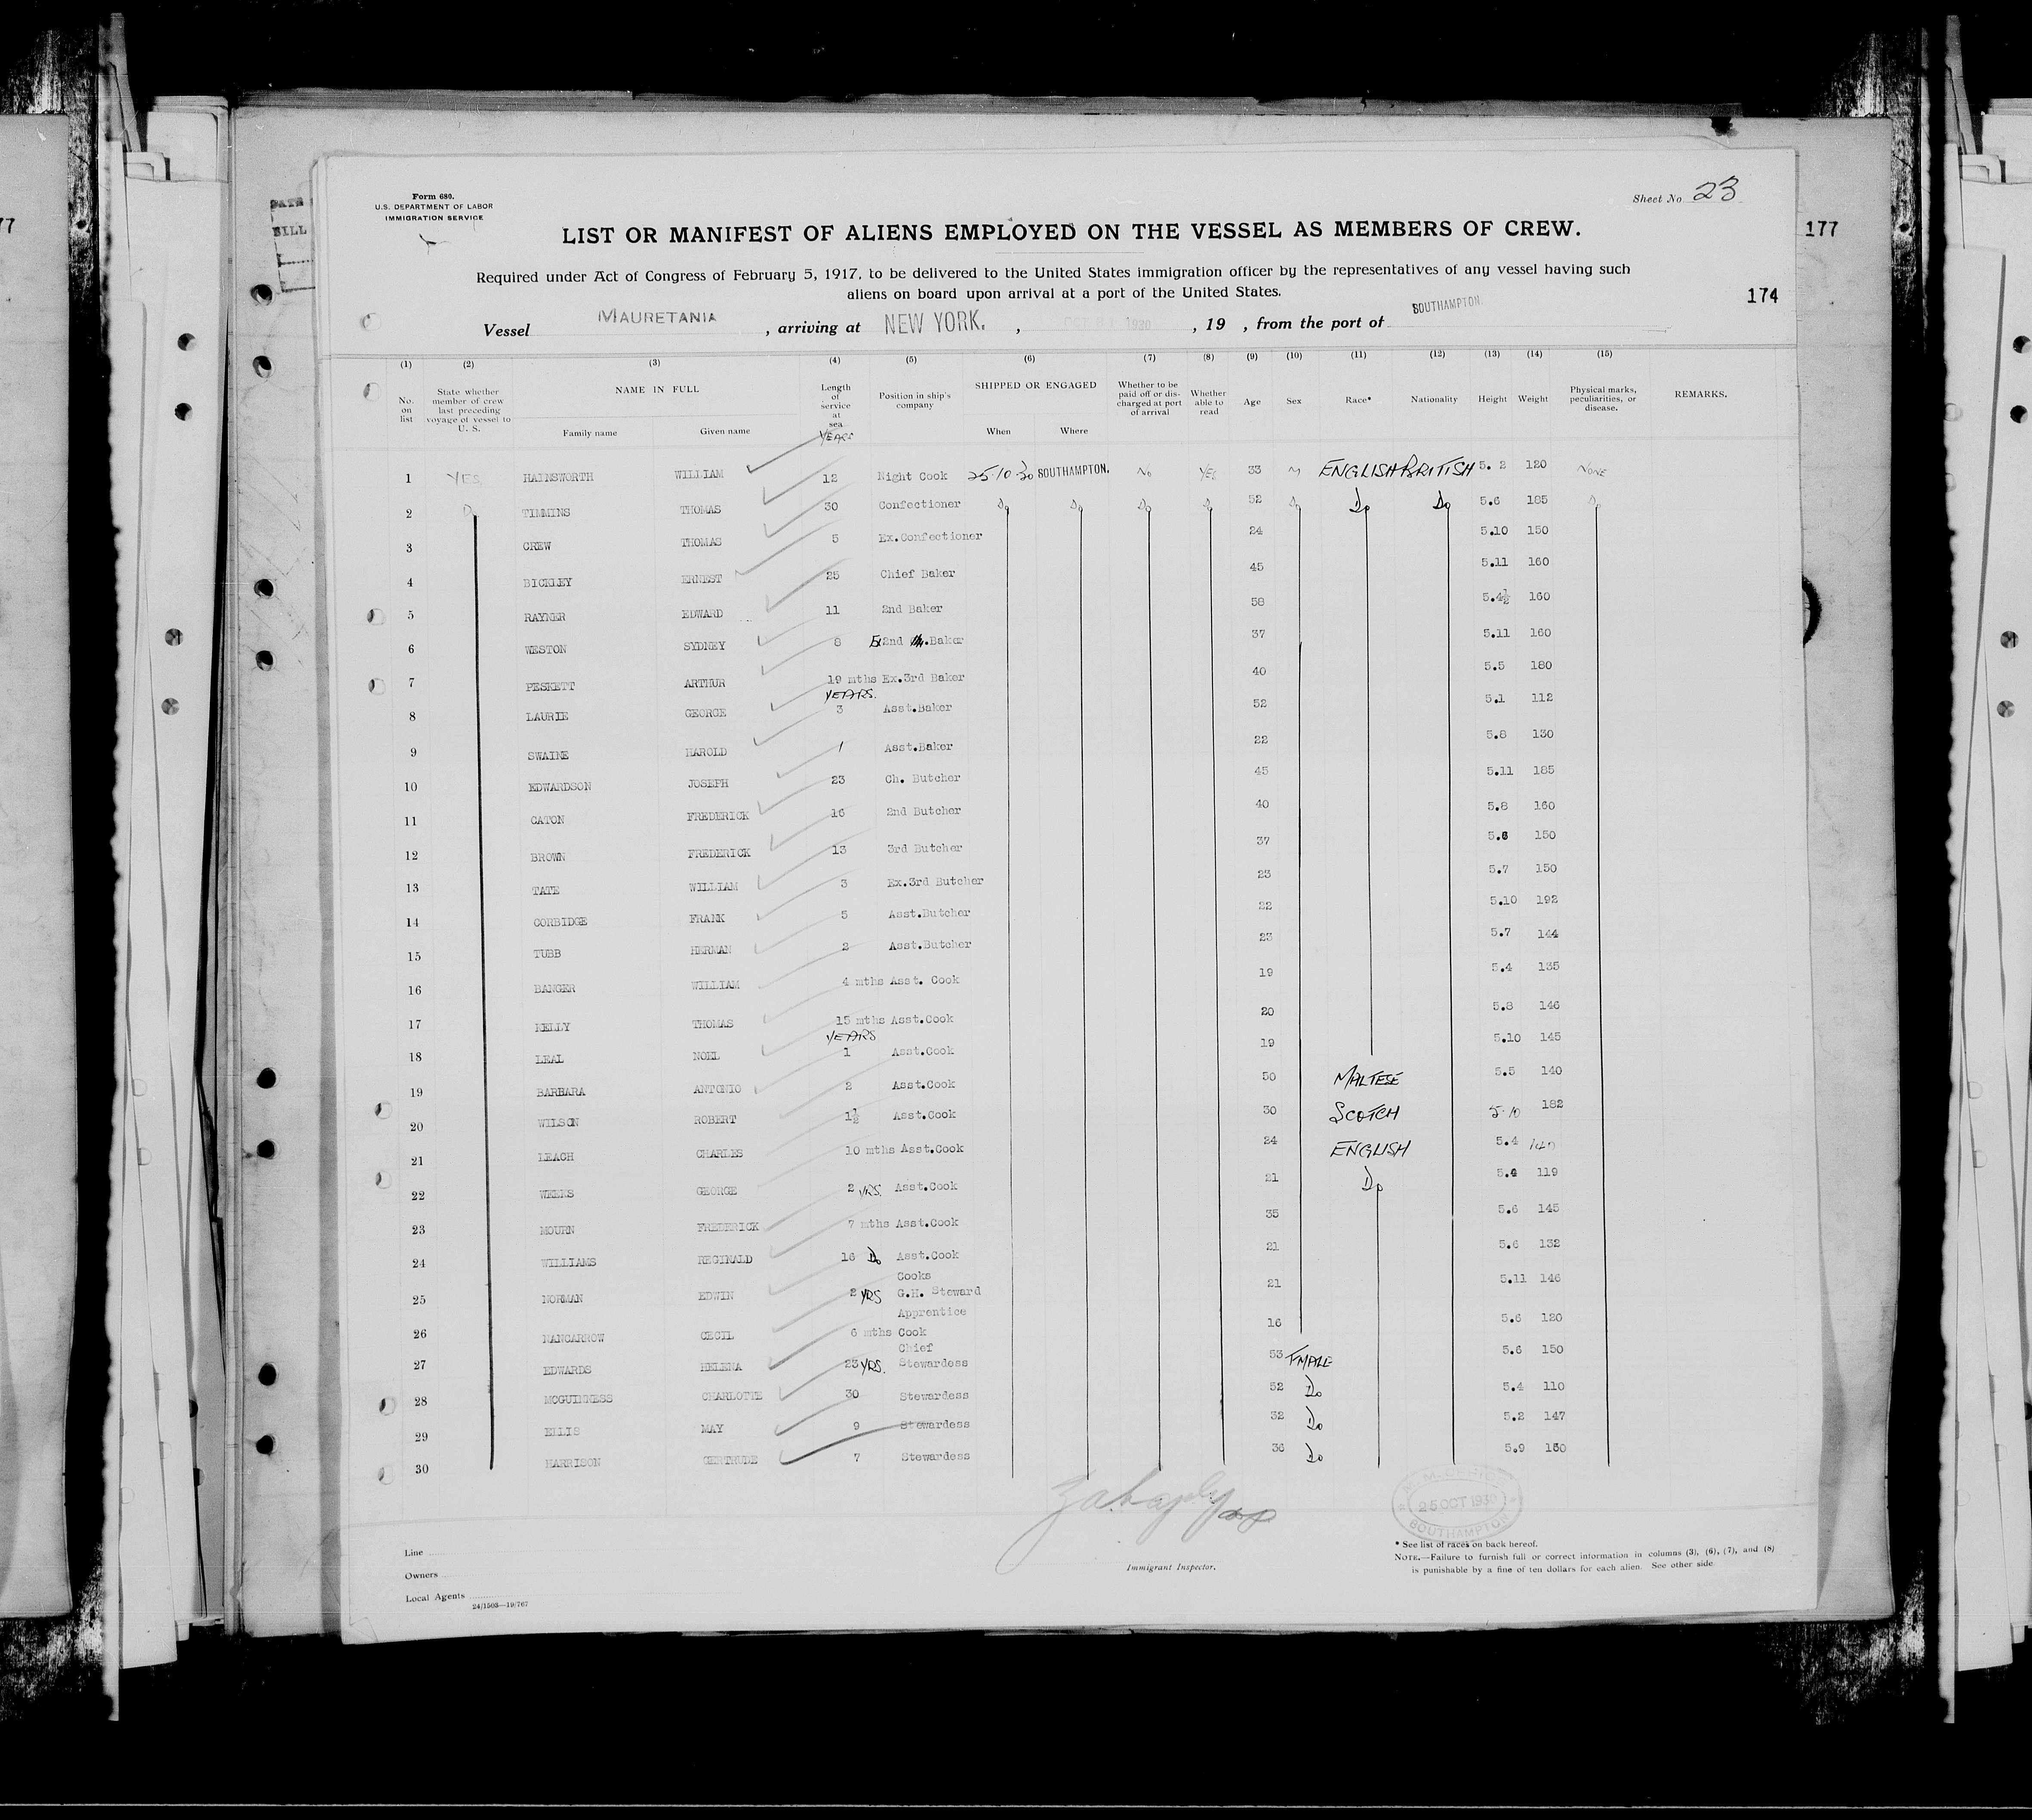 Form 680.
U.S. DEPARTMENT OF LABOR
IMMIGRATION SERVICE
Sheet No. 23
LIST OR MANIFEST OF ALIENS EMPLOYED ON THE VESSEL AS MEMBERS OF CREW.
177
77
Required under Act of Congress of February 5, 1917, to be delivered to the United States immigration officer by the representatives of any vessel having such
aliens on board upon arrival at a port of the United States.
174
Vessel MAURETANIA , arriving at NEW YORK. , OCT 31 1930 , 19 , from the port of SOUTHAMPTON.
(1) (2) (3) (4) (5) (6) (7) (8) (9) (10) (11) (12) (13) (14) (15)
No. on list State whether member of crew last preceding voyage of vessel to U. S. NAME IN FULL Family name Given name Length of service at sea YEARS Position in ship's company SHIPPED OR ENGAGED When Where Whether to be paid off or discharged at port of arrival Whether able to read Age Sex Race* Nationality Height Weight Physical marks, peculiarities, or disease. REMARKS.
1 YES HAINSWORTH WILLIAM 12 Night Cook 25.10.30 SOUTHAMPTON. No YES 33 M ENGLISH BRITISH 5.2 120 NONE
2 Do TIMMINS THOMAS 30 Confectioner Do Do Do Do 52 Do Do Do 5.6 185 Do
3 CREW THOMAS 5 Ex.Confectioner 24 5.10 150
4 BICKLEY ERNEST 25 Chief Baker 45 5.11 160
5 RAYNER EDWARD 11 2nd Baker 58 5.4½ 160
6 WESTON SYDNEY 8 Ex 2nd Baker 37 5.11 160
7 PESKETT ARTHUR 19 mths Ex.3rd Baker 40 5.5 180
YEARS.
8 LAURIE GEORGE 3 Asst.Baker 52 5.1 112
9 SWAINE HAROLD 1 Asst.Baker 22 5.8 130
10 EDWARDSON JOSEPH 23 Ch. Butcher 45 5.11 185
11 CATON FREDERICK 16 2nd Butcher 40 5.8 160
12 BROWN FREDERICK 13 3rd Butcher 37 5.6 150
13 TATE WILLIAM 3 Ex.3rd Butcher 23 5.7 150
14 CORBIDGE FRANK 5 Asst.Butcher 22 5.10 192
15 TUBB HERMAN 2 Asst.Butcher 23 5.7 144
16 BANGER WILLIAM 4 mths Asst. Cook 19 5.4 135
17 KELLY THOMAS 15 mths Asst.Cook 20 5.8 146
YEARS
18 LEAL NOEL 1 Asst.Cook 19 5.10 145
19 BARBARA ANTONIO 2 Asst.Cook 50 MALTESE 5.5 140
20 WILSON ROBERT 1½ Asst.Cook 30 SCOTCH 5.10 182
21 LEACH CHARLES 10 mths Asst.Cook 24 ENGLISH 5.4 140
22 WEEKS GEORGE 2 YRS. Asst.Cook 21 Do 5.4 119
23 MOURN FREDERICK 7 mths Asst.Cook 35 5.6 145
24 WILLIAMS REGINALD 16 Do Asst.Cook 21 5.6 132
Cooks
25 NORMAN EDWIN 2 YRS G.H. Steward 21 5.11 146
Apprentice
26 NANCARROW CECIL 6 mths Cook 16 5.6 120
Chief
27 EDWARDS HELENA 23 YRS. Stewardess 53 FMALE 5.6 150
28 MCGUINNESS CHARLOTTE 30 Stewardess 52 Do 5.4 110
29 ELLIS MAY 9 Stewardess 32 Do 5.2 147
30 HARRISON GERTRUDE 7 Stewardess 36 Do 5.9 150
25 OCT 1930
SOUTHAMPTON
Line
Owners
Local Agents
24/1503—19/767
Immigrant Inspector.
* See list of races on back hereof.
NOTE.—Failure to furnish full or correct information in columns (3), (6), (7), and (8)
is punishable by a fine of ten dollars for each alien. See other side.